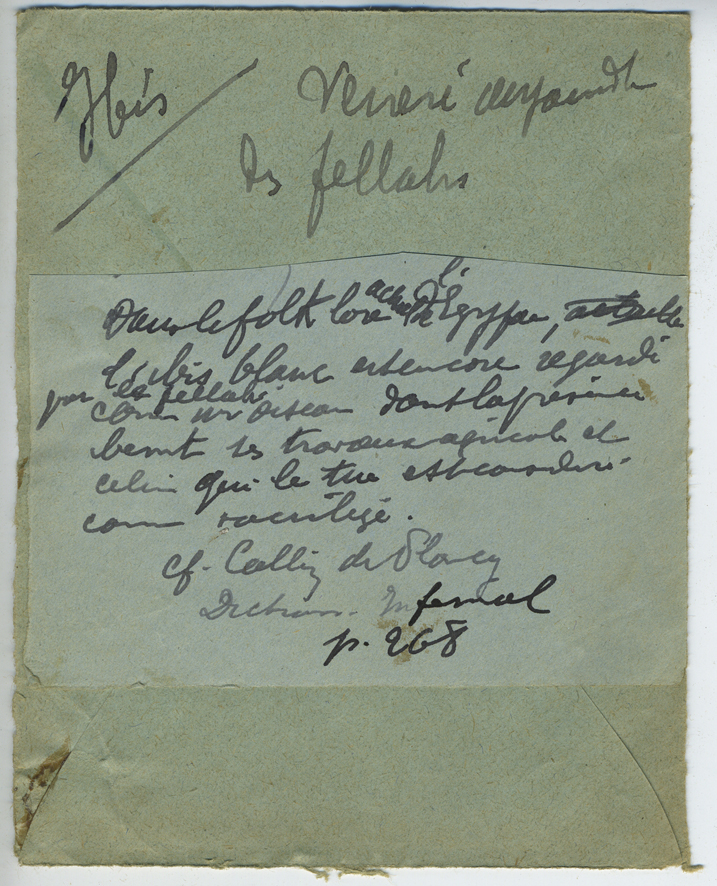 Ibis / Vénéré aujourd'h
des fellahs
Dans le folk lore actuel de l'Egypte, actuelle
l'ibis blanc est encore regardé
par les fellahs
comm un oiseau dont la présence
benit les travaux agricoles et
celui qui le tue est considéré
comm sacrilège.
cf. Collin de Plancy
Diction. Infernal
p. 268